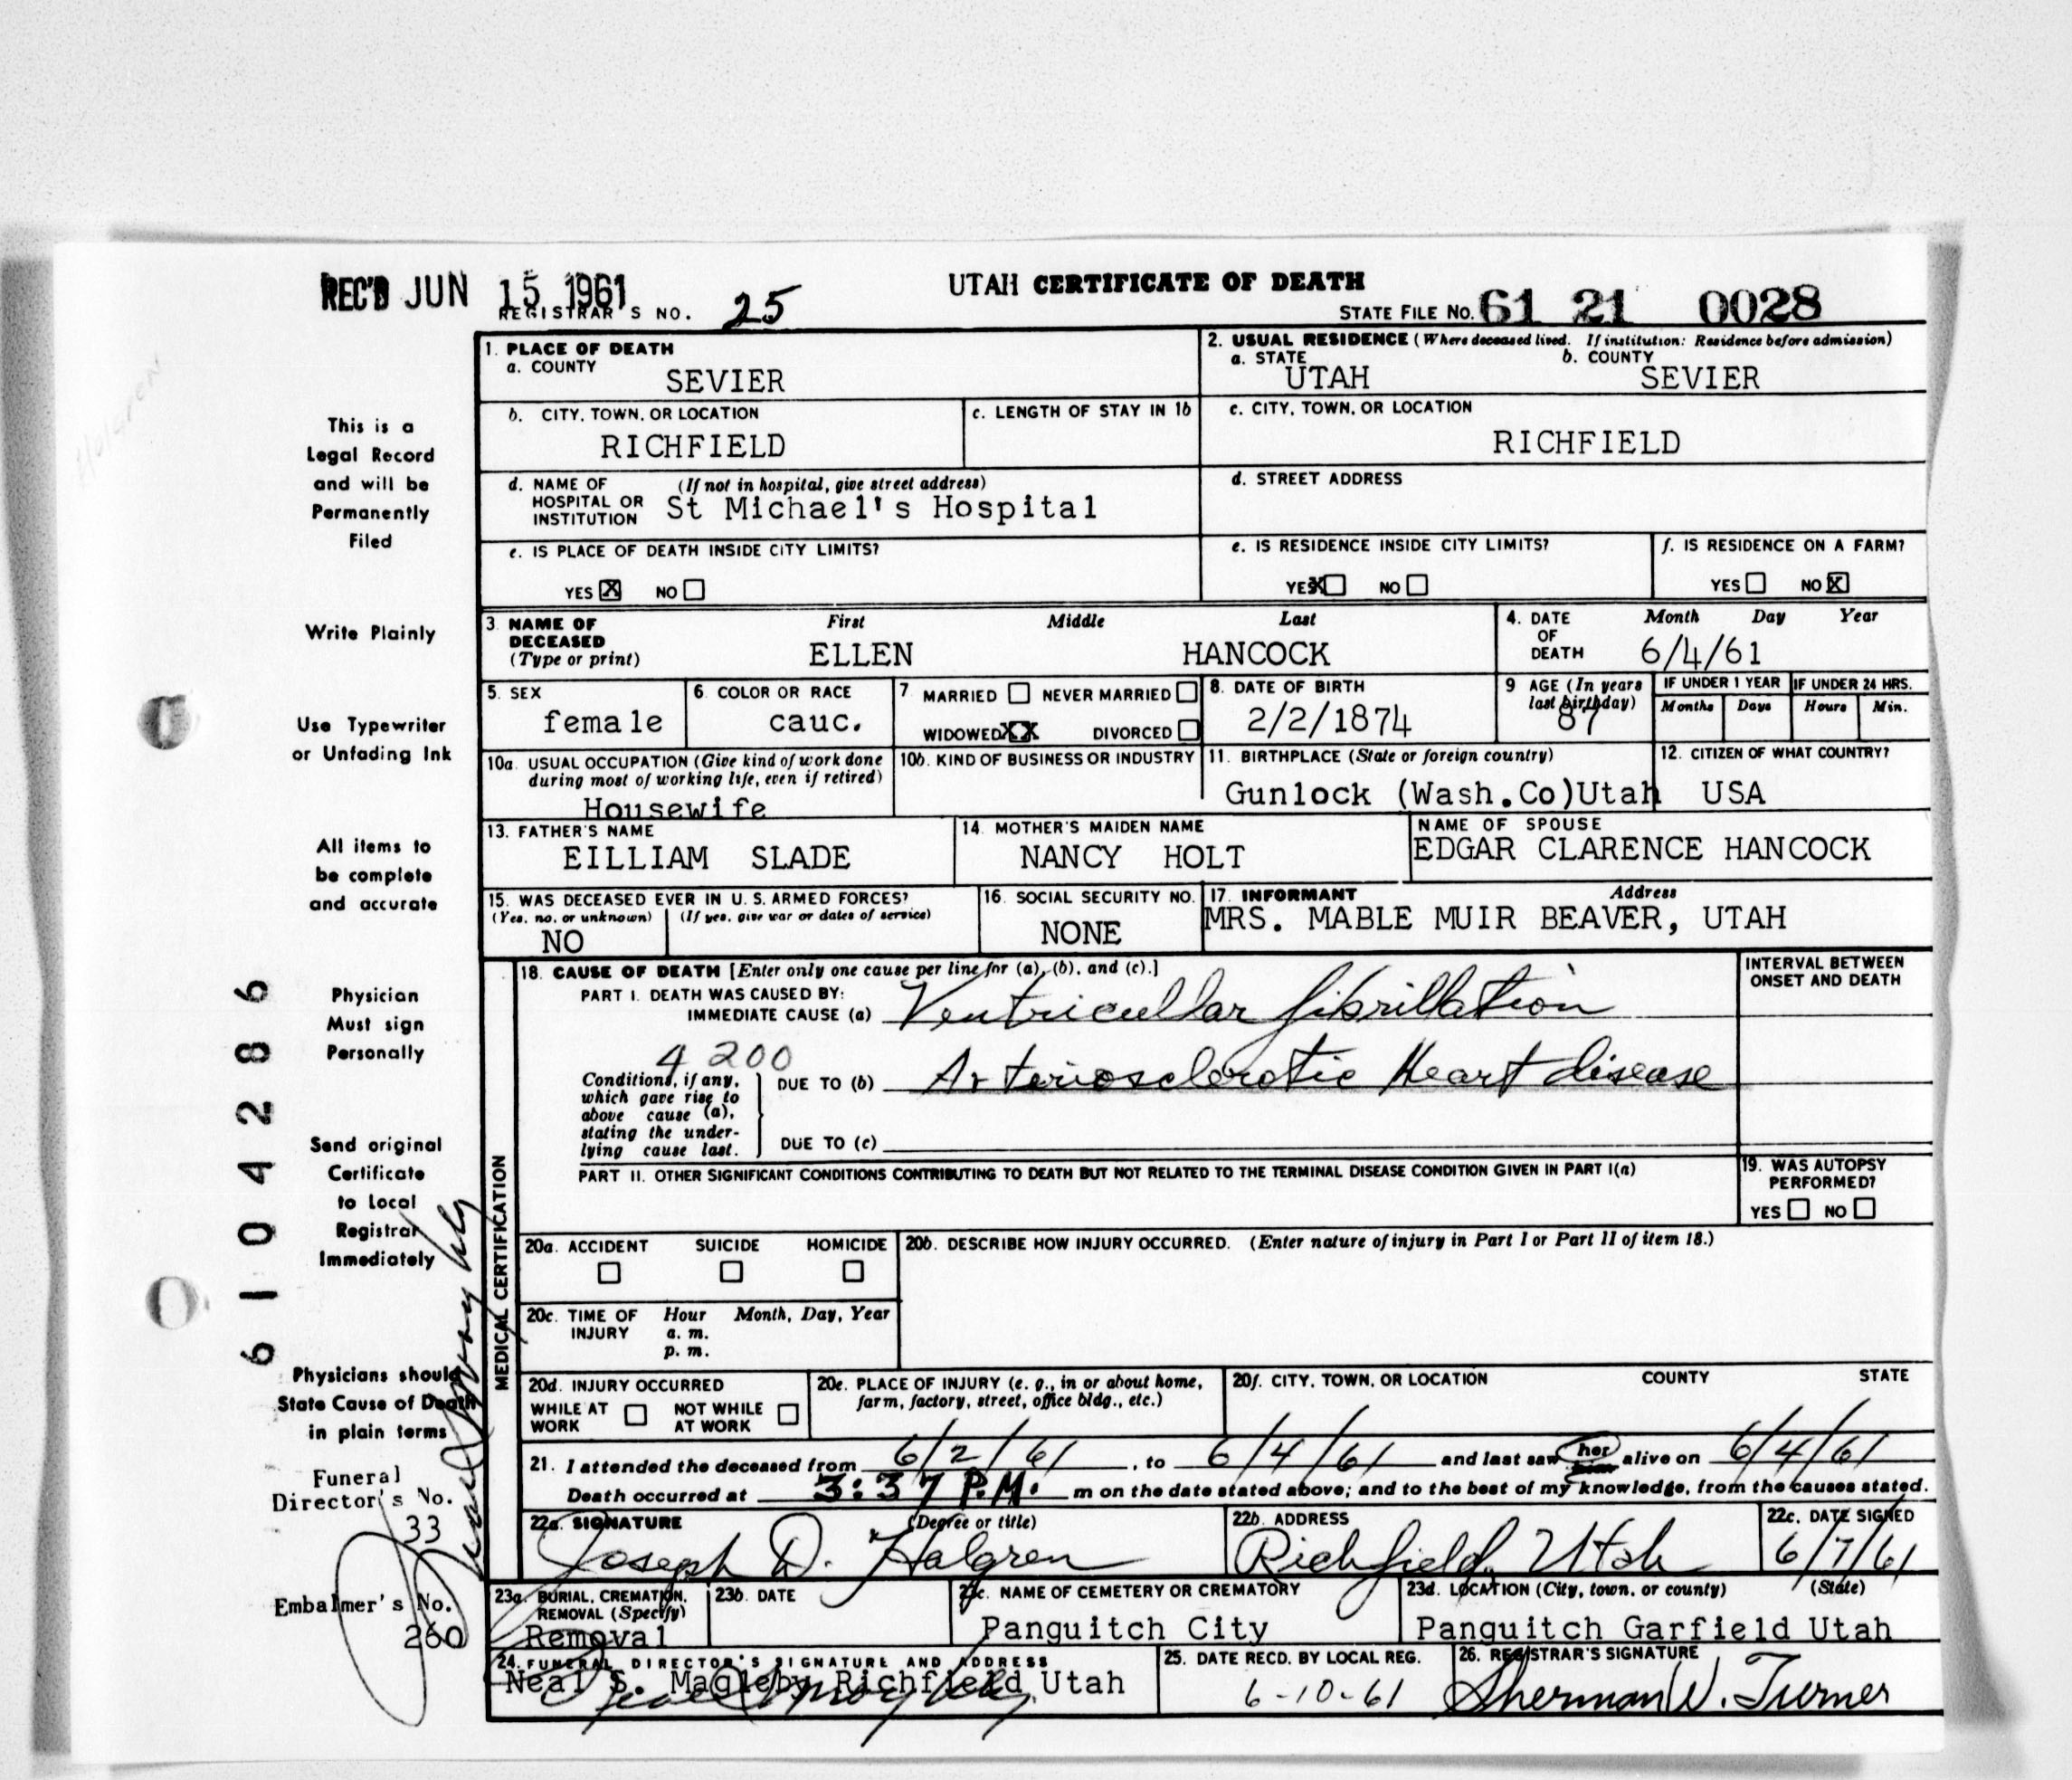 REC'D JUN 15 1961
UTAH CERTIFICATE OF DEATH
REGISTRAR'S NO. 25
STATE FILE NO. 61 21 0028
1. PLACE OF DEATH
a. COUNTY
SEVIER
2. USUAL RESIDENCE (Where deceased lived. If institution: Residence before admission)
a. STATE
UTAH
b. COUNTY
SEVIER
b. CITY, TOWN, OR LOCATION
RICHFIELD
c. LENGTH OF STAY IN 1b
c. CITY, TOWN, OR LOCATION
RICHFIELD
d. NAME OF HOSPITAL OR INSTITUTION
(If not in hospital, give street address)
St Michael's Hospital
d. STREET ADDRESS
e. IS PLACE OF DEATH INSIDE CITY LIMITS?
YES X NO
e. IS RESIDENCE INSIDE CITY LIMITS?
YES X NO
f. IS RESIDENCE ON A FARM?
YES NO X
3. NAME OF DECEASED
(Type or print)
First Middle Last
ELLEN HANCOCK
4. DATE OF DEATH
Month Day Year
6/4/61
5. SEX
female
6. COLOR OR RACE
cauc.
7. MARRIED NEVER MARRIED
WIDOWED XX DIVORCED
8. DATE OF BIRTH
2/2/1874
9 AGE (In years last birthday)
87
IF UNDER 1 YEAR
Months Days
IF UNDER 24 HRS.
Hours Min.
10a. USUAL OCCUPATION (Give kind of work done during most of working life, even if retired)
Housewife
10b. KIND OF BUSINESS OR INDUSTRY
11. BIRTHPLACE (State or foreign country)
Gunlock (Wash.Co)Utah
12. CITIZEN OF WHAT COUNTRY?
USA
13. FATHER'S NAME
EILLIAM SLADE
14. MOTHER'S MAIDEN NAME
NANCY HOLT
NAME OF SPOUSE
EDGAR CLARENCE HANCOCK
15. WAS DECEASED EVER IN U. S. ARMED FORCES?
(Yes, no, or unknown) (If yes, give war or dates of service)
NO
16. SOCIAL SECURITY NO.
NONE
17. INFORMANT Address
MRS. MABLE MUIR BEAVER, UTAH
MEDICAL CERTIFICATION
18. CAUSE OF DEATH [Enter only one cause per line for (a), (b), and (c).]
PART I. DEATH WAS CAUSED BY:
IMMEDIATE CAUSE (a) Ventricullar fibrillation
4200
Conditions, if any, which gave rise to above cause (a), stating the underlying cause last.
DUE TO (b) Arteriosclerotic Heart disease
DUE TO (c)
INTERVAL BETWEEN ONSET AND DEATH
PART II. OTHER SIGNIFICANT CONDITIONS CONTRIBUTING TO DEATH BUT NOT RELATED TO THE TERMINAL DISEASE CONDITION GIVEN IN PART I(a)
19. WAS AUTOPSY PERFORMED?
YES NO
20a. ACCIDENT SUICIDE HOMICIDE
20b. DESCRIBE HOW INJURY OCCURRED. (Enter nature of injury in Part I or Part II of item 18.)
20c. TIME OF INJURY
Hour Month, Day, Year
a. m.
p. m.
20d. INJURY OCCURRED
WHILE AT WORK NOT WHILE AT WORK
20e. PLACE OF INJURY (e. g., in or about home, farm, factory, street, office bldg., etc.)
20f. CITY, TOWN, OR LOCATION COUNTY STATE
21. I attended the deceased from 6/2/61, to 6/4/61 and last saw her alive on 6/4/61
Death occurred at 3:37 P.M. m on the date stated above; and to the best of my knowledge, from the causes stated.
22a. SIGNATURE (Degree or title)
Joseph D. Halgren
22b. ADDRESS
Richfield, Utah
22c. DATE SIGNED
6/7/61
23a. BURIAL, CREMATION, REMOVAL (Specify)
Removal
23b. DATE
23c. NAME OF CEMETERY OR CREMATORY
Panguitch City
23d. LOCATION (City, town, or county) (State)
Panguitch Garfield Utah
24. FUNERAL DIRECTOR'S SIGNATURE AND ADDRESS
Neal S. Magleby Richfield Utah
25. DATE RECD. BY LOCAL REG.
6-10-61
26. REGISTRAR'S SIGNATURE
Sherman W. Turner
This is a
Legal Record
and will be
Permanently
Filed
Write Plainly
Use Typewriter
or Unfading Ink
All items to
be complete
and accurate
Physician
Must sign
Personally
Send original
Certificate
to Local
Registrar
Immediately
Physicians should
State Cause of Death
in plain terms
Funeral
Director's No.
33
Embalmer's No.
260
6104286